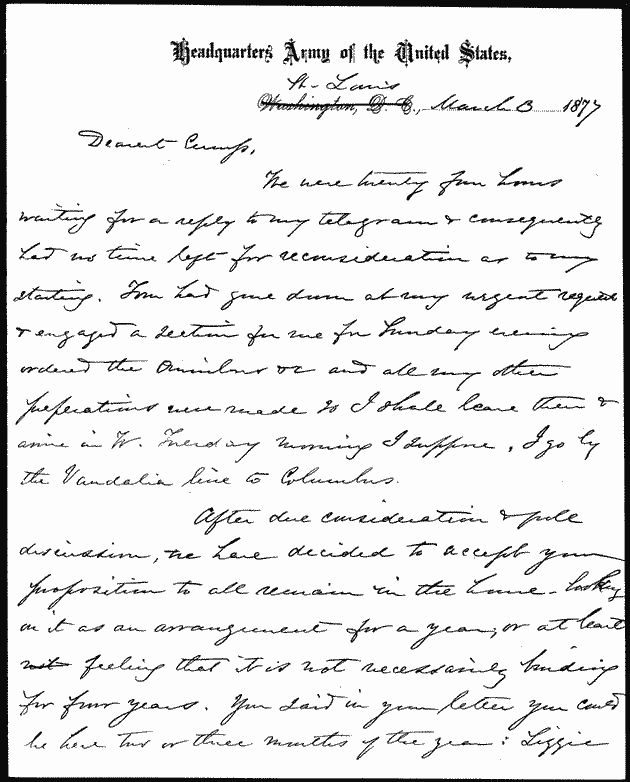 Headquarters Army of the United States,
St. Louis
Washington, D. C., March 3 1877
Dearest Cump,
We were twenty four hours
waiting for a reply to my telegram & consequently
had no time left for reconsideration as to my
starting. Tom had gone down at my urgent request
& engaged a section for me for Sunday evening
ordered the Omnibus &c and all my other
preperations were made so I shall leave then &
arrive in W. Tuesday morning I suppose. I go by
the Vandalia line to Columbus.
After due consideration & full
discussion, we have decided to accept your
proposition to all remain in the house - looking
on it as an arrangement for a year, or at least
not feeling that it is not necessarily binding
for four years. You said in your letter you could
be here two or three months of the year: Lizzie